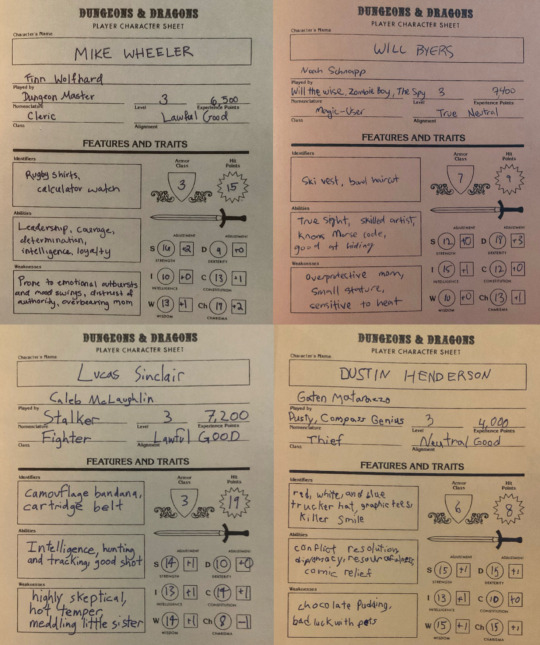 DUNGEONS & DRAGONS
PLAYER CHARACTER SHEET
Character's Name
MIKE WHEELER
Finn Wolfhard
Played by
Dungeon Master 3 6,500
Nomenclature Level Experience Points
Cleric Lawful Good
Class Alignment
FEATURES AND TRAITS
Identifiers
Rugby shirts,
calculator watch
Armor Class
3
Hit Points
15
Abilities
Leadership, courage,
determination,
intelligence, loyalty
Weaknesses
Prone to emotional outbursts
and mood swings, distrust of
authority, overbearing mom
ADJUSTMENT ADJUSTMENT
S 16 +2 D 9 +0
STRENGTH DEXTERITY
I 10 +0 C 13 +1
INTELLIGENCE CONSTITUTION
W 13 +1 Ch 17 +2
WISDOM CHARISMA
DUNGEONS & DRAGONS
PLAYER CHARACTER SHEET
Character's Name
WILL BYERS
Noah Schnapp
Played by
Will the wise, Zombie Boy, The Spy 3 9400
Nomenclature Level Experience Points
Magic-User True Neutral
Class Alignment
FEATURES AND TRAITS
Identifiers
Ski vest, bowl haircut
Armor Class
7
Hit Points
9
Abilities
True Sight, skilled artist,
knows Morse code,
good at hiding
Weaknesses
overprotective mom,
Small stature,
sensitive to heat
ADJUSTMENT ADJUSTMENT
S 12 +0 D +3
STRENGTH DEXTERITY
I 15 +1 C 12 +0
INTELLIGENCE CONSTITUTION
W 10 +0 Ch 13 +1
WISDOM CHARISMA
DUNGEONS & DRAGONS
PLAYER CHARACTER SHEET
Character's Name
Lucas Sinclair
Caleb McLaughlin
Played by
Stalker 3 7,200
Nomenclature Level Experience Points
Fighter Lawful GOOD
Class Alignment
FEATURES AND TRAITS
Identifiers
camouflage bandana,
cartridge belt
Armor Class
3
Hit Points
19
Abilities
Intelligence, hunting
and tracking, good shot
Weaknesses
highly skeptical,
hot temper,
meddling little sister
ADJUSTMENT ADJUSTMENT
S 14 +1 D 10 +0
STRENGTH DEXTERITY
I 13 +1 C 14 +1
INTELLIGENCE CONSTITUTION
W 14 +1 Ch 8 -1
WISDOM CHARISMA
DUNGEONS & DRAGONS
PLAYER CHARACTER SHEET
Character's Name
DUSTIN HENDERSON
Gaten Matarazzo
Played by
Dusty, Compass Genius 3 4,000
Nomenclature Level Experience Points
Thief Neutral Good
Class Alignment
FEATURES AND TRAITS
Identifiers
red, white, and blue
trucker hat, graphic tees,
killer smile
Armor Class
6
Hit Points
8
Abilities
conflict resolution,
diplomacy, resourcefulness
comic relief
Weaknesses
chocolate pudding,
bad luck with pets
ADJUSTMENT ADJUSTMENT
S 15 +1 D 15 +1
STRENGTH DEXTERITY
I 13 +1 C 10 +0
INTELLIGENCE CONSTITUTION
W 15 +1 Ch 15 +1
WISDOM CHARISMA